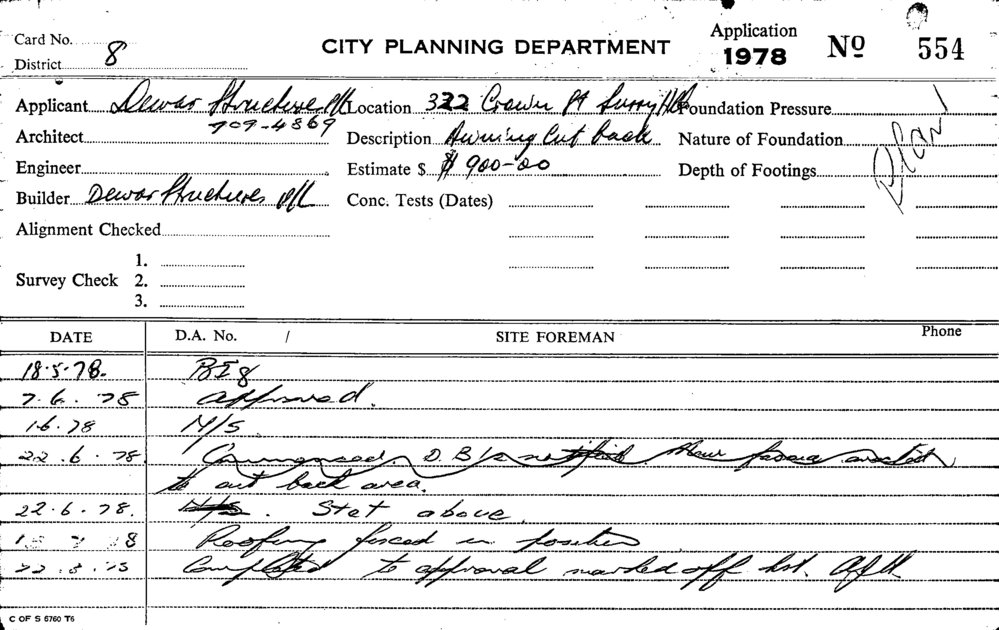 Card No.
District 8
CITY PLANNING DEPARTMENT
Application
1978 No 554
Applicant Dewar Structures P/L Location 322 Crown St Surry Hills Foundation Pressure
709-4869
Architect Description Awning Cut back Nature of Foundation
Engineer Estimate $ $ 900-00 Depth of Footings
Plan
Builder Dewar Structures P/L Conc. Tests (Dates)
Alignment Checked
1.
Survey Check 2.
3.
DATE D.A. No. / SITE FOREMAN Phone
18.5.78. BI8
7.6.78 Approved.
16.78 N/S
22.6.78. Commenced. D.B/s notified New fascia erected
to cut back area.
22.6.78. N/S. Stet above.
8 Roofing in position
22.8. Completed to approval marked off list.
C OF S 6760 T6